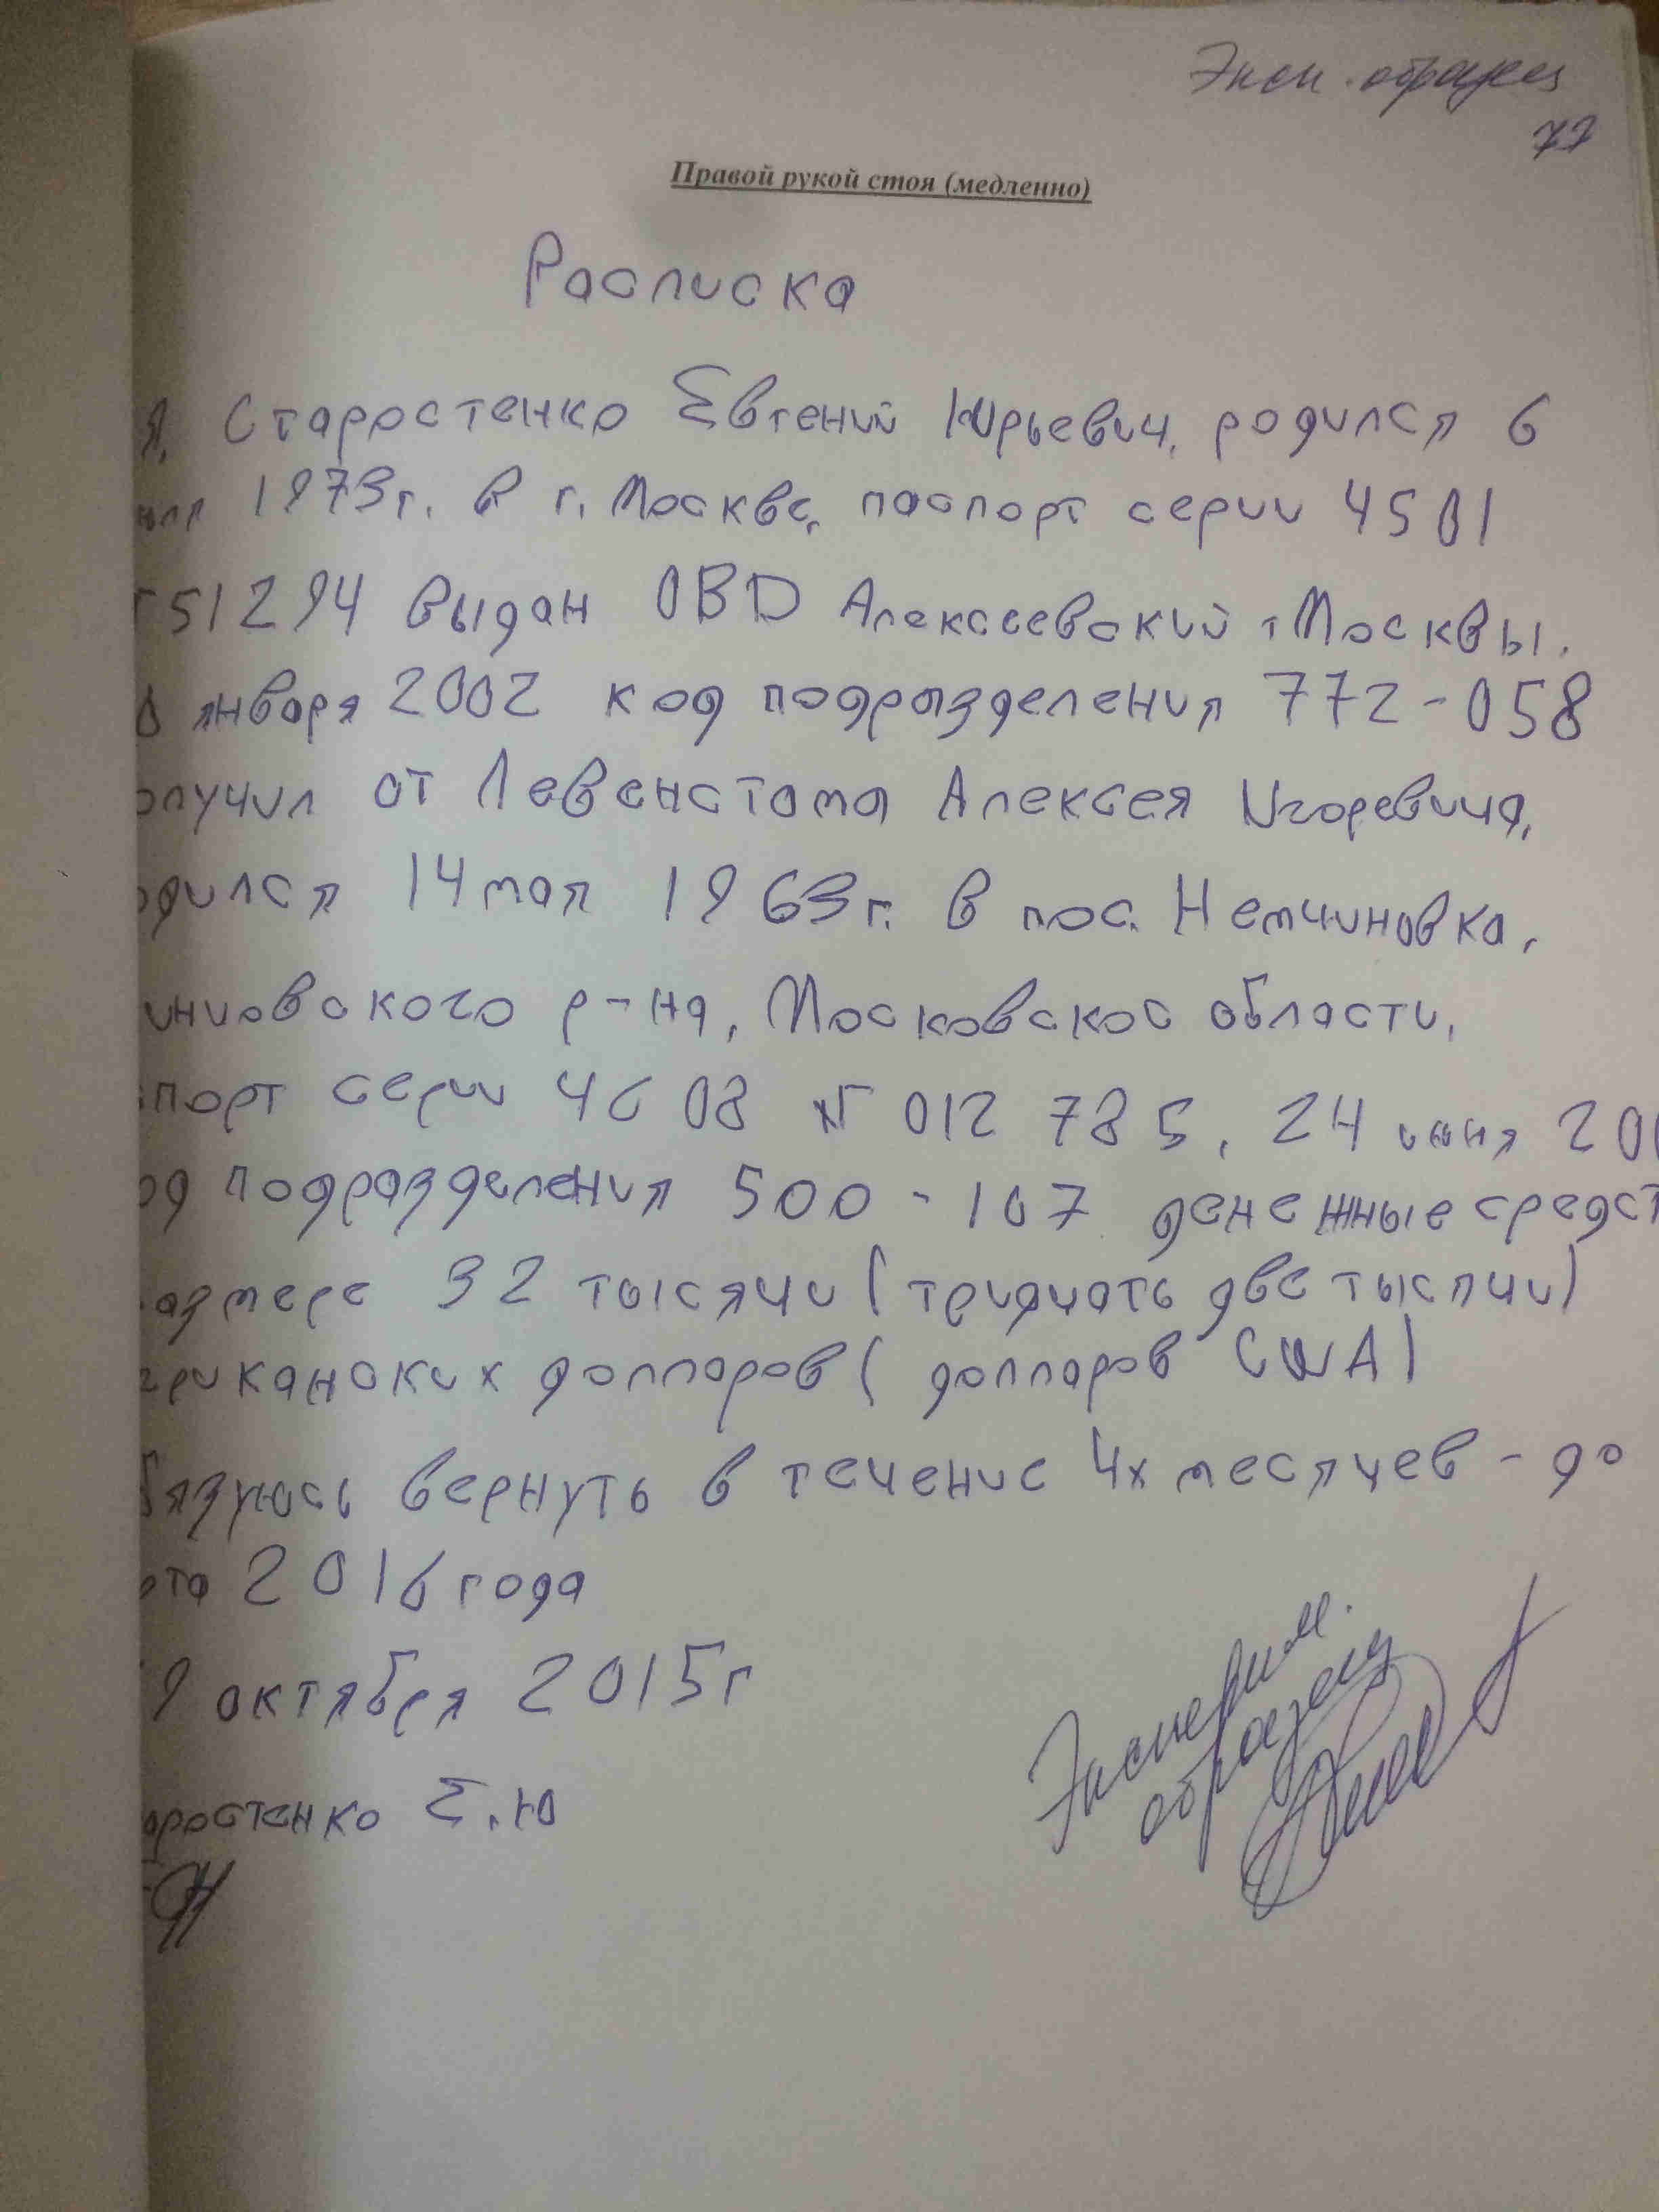 Эксп. образец
77
Правой рукой стоя (медленно)
Расписка
Я, Старостенко Евгений Юрьевич, родился 6
1973г. в г. Москве, паспорт серии 4501
51294 выдан ОВD Алексеевский г Москвы.
января 2002 код подразделения 772-058
олучил от Левенстама Алексея Игоревича,
одился 14 мая 1963г. в пос. Немчиновка,
инцовского р-на, Московскос области,
спорт серии 4608 № 012785, 24 июня 20
од подразделения 500-107 денежные средст
азмере 32 тысячи (тридцать две тысячи)
ериканских долларов (долларов США)
бязуюсь вернуть в течение 4х месяцев - до
рта 2016 года
9 октября 2015г
аростенко Е.Ю
Эксперим.
образец